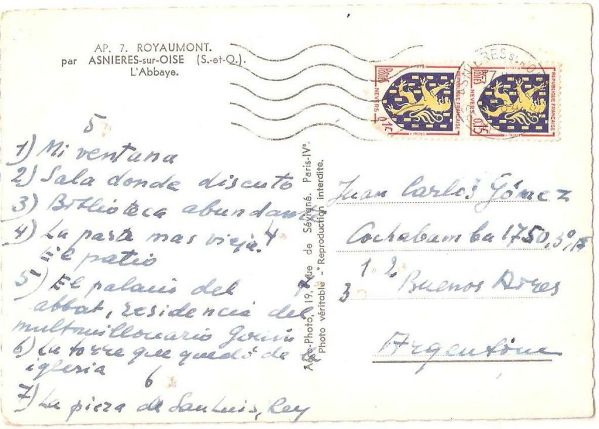 AP. 7. ROYAUMONT.
par ASNIERES-sur-OISE (S.-et-O.)
L'Abbaye.
5
1) Mi ventana
2) Sala donde discuto
3) Biblioteca abundan
4) La parte mas vieja. 4
El patio
5) El palacio del
abbat, residencia del
multmillonario
6) La torre que quedó de
iglesia
6
7) La pieza de San Luis, Rey
Photo, 19, rue de Sévigné, Paris-IVe
Photo véritable - Reproduction interdite.
REPUBLIQUE FRANÇAISE
POSTES
NEVERS
0,15
REPUBLIQUE FRANÇAISE
POSTES
NEVERS
0,15
ASNIERES S/ OISE
Juan Carlos Gómez
Cochabamba 1750, 3º,
1 2
3
Buenos Aires
Argentine